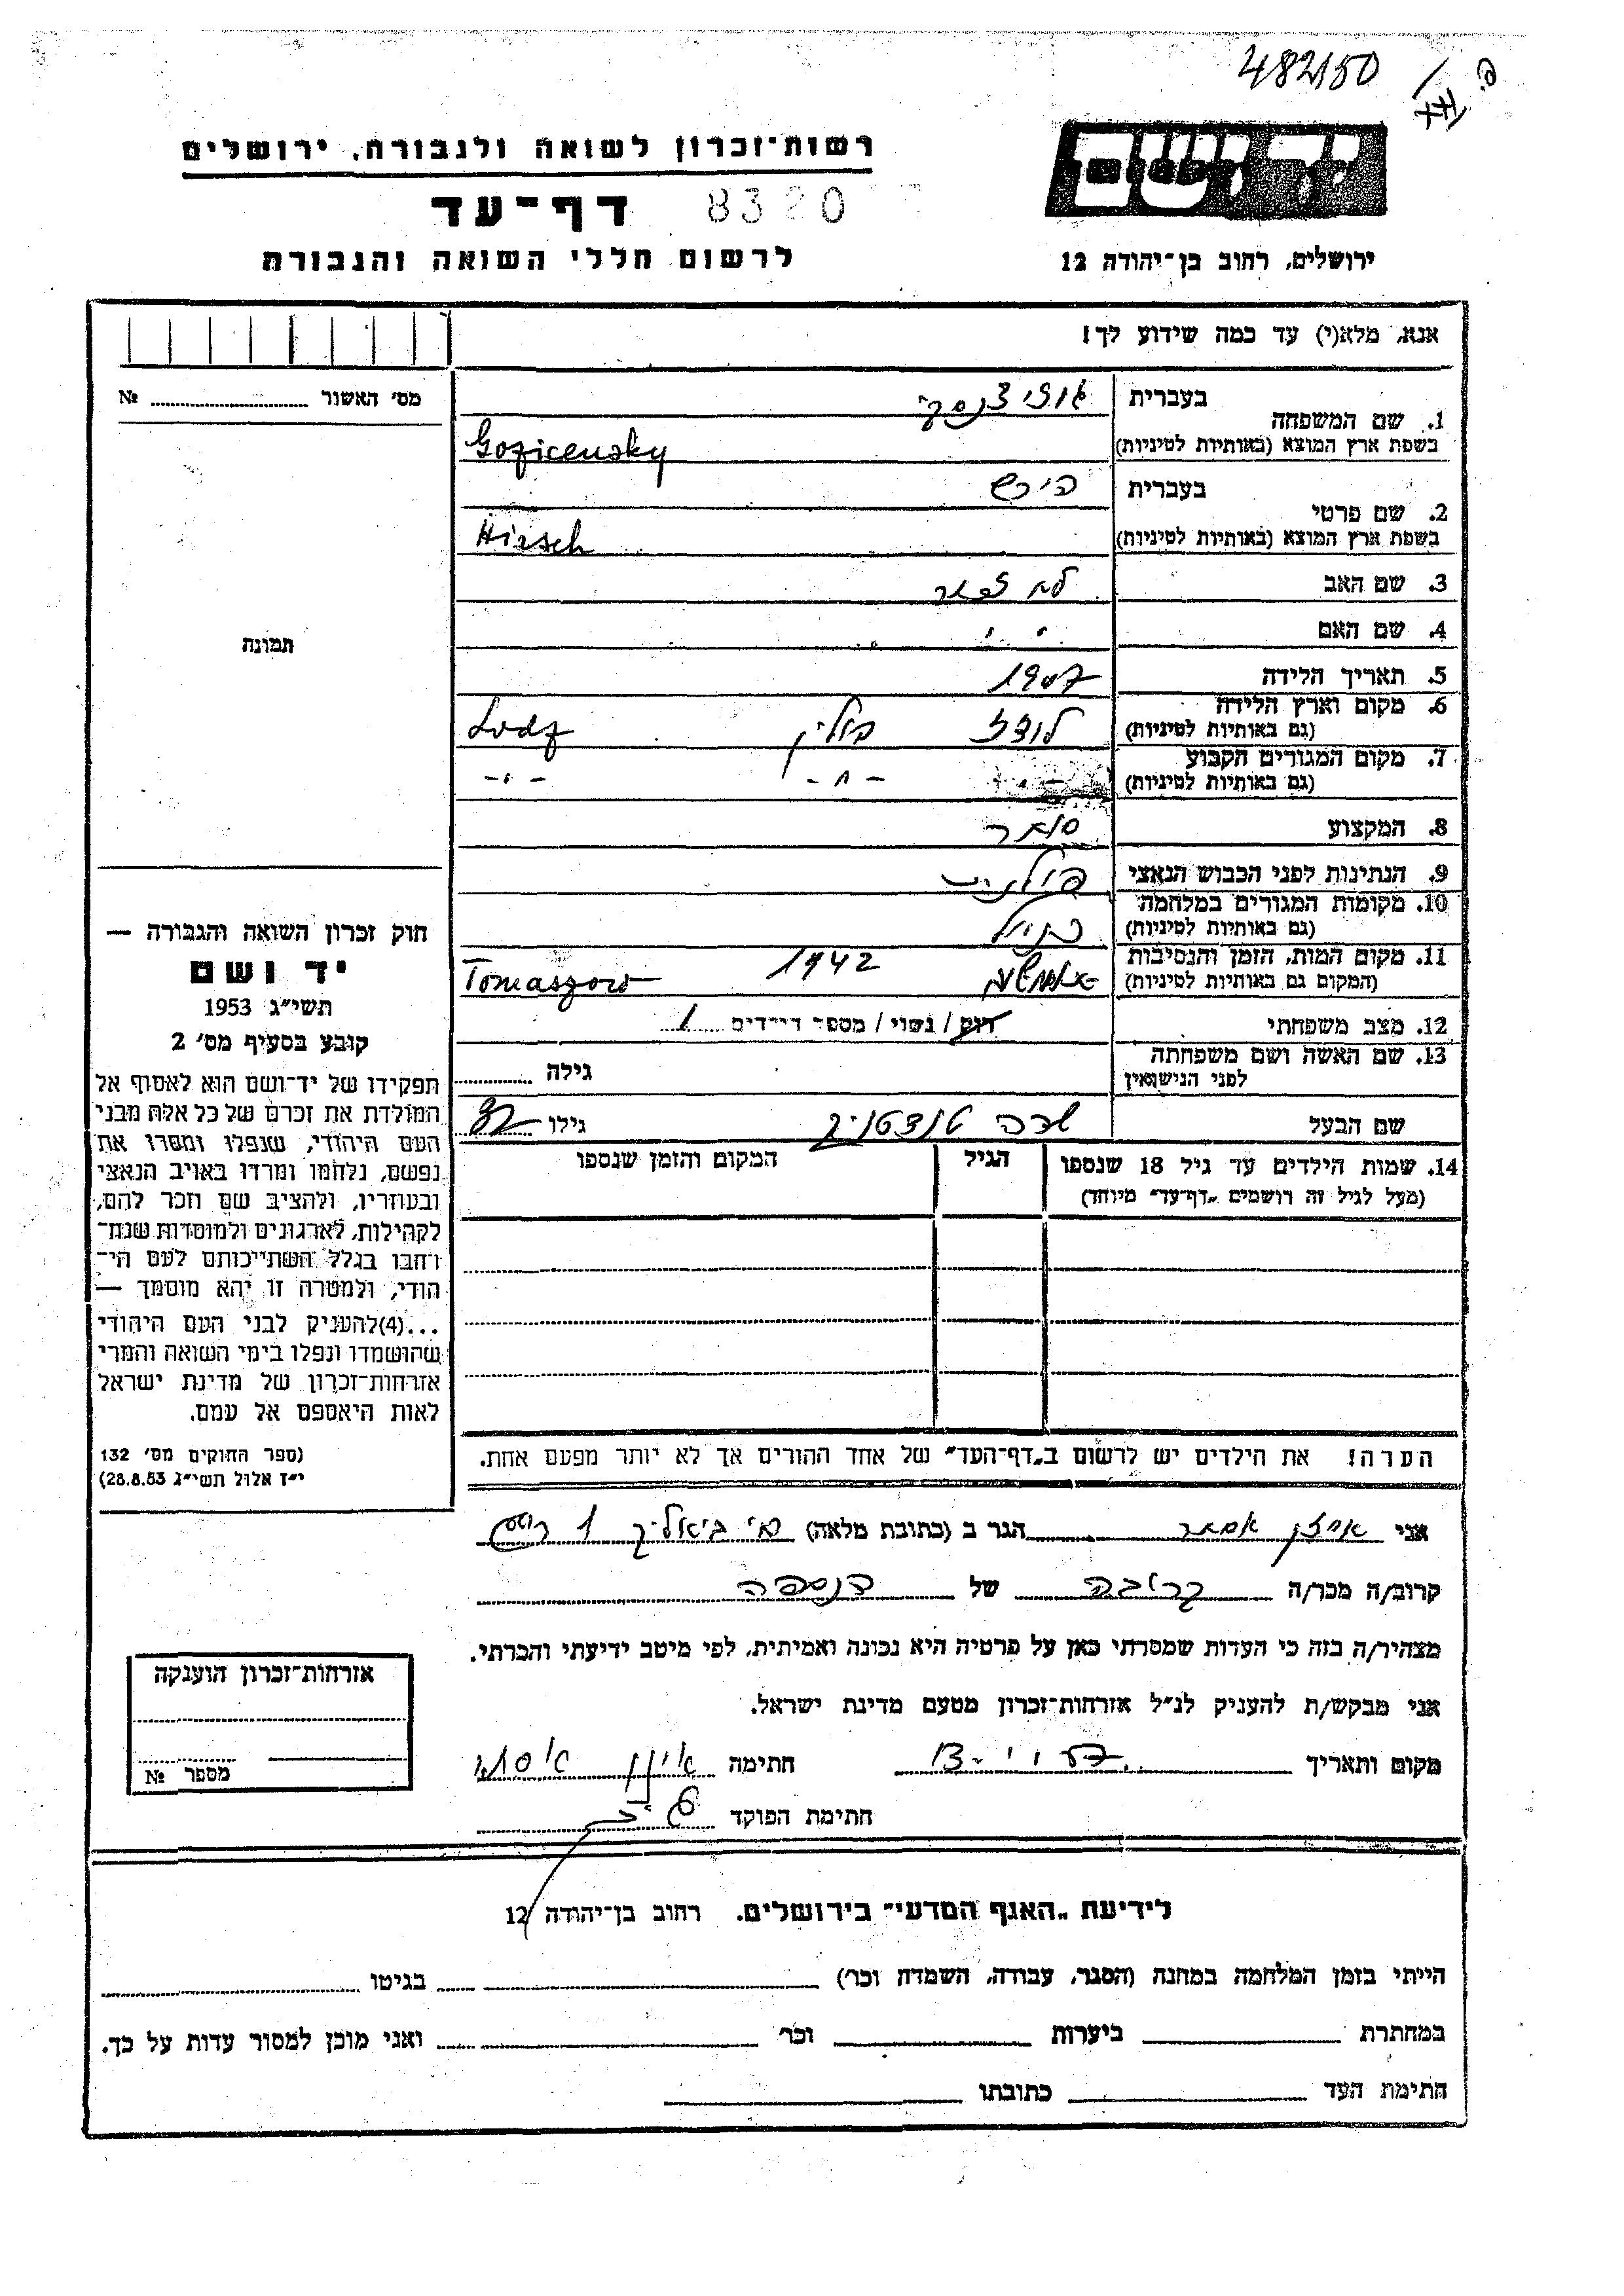 482150
יד ושם
רשות־זכרון לשואה ולגבורה, ירושלים
דף־עד 8320
ירושלים, רחוב בן־יהודה 12
לרשום חללי השואה והגבורה
אנא, מלא(י) עד כמה שידוע לך!
מס׳ האשור № 
1. שם המשפחה
בעברית
בשפת ארץ המוצא (באותיות לטיניות) Gozicensky
2. שם פרטי
בעברית הירש
בשפת ארץ המוצא (באותיות לטיניות) Hirsch
3. שם האב לא זכור
4. שם האם " "
5. תאריך הלידה 1907
6. מקום וארץ הלידה לודז פולין Lodz
(גם באותיות לטיניות)
7. מקום המגורים הקבוע -"- -"- -"-
(גם באותיות לטיניות)
8. המקצוע סוחר
9. הנתינות לפני הכבוש הנאצי פולנית
10. מקומות המגורים במלחמה כנ"ל
(גם באותיות לטיניות)
11. מקום המות, הזמן והנסיבות 1942 Tomaszow
(המקום גם באותיות לטיניות)
12. מצב משפחתי רווק / נשוי / מספר הילדים 1
13. שם האשה ושם משפחתה
לפני הנישואין
גילה
שם הבעל שרה גילו
14. שמות הילדים עד גיל 18 שנספו
(מעל לגיל זה רושמים „דף־עד״ מיוחד)
הגיל
המקום והזמן שנספו
תמונה
חוק זכרון השואה והגבורה —
יד ושם
תשי״ג 1953
קובע בסעיף מס׳ 2
תפקידו של יד־ושם הוא לאסוף אל
המולדת את זכרם של כל אלה מבני
העם היהודי, שנפלו ומסרו את
נפשם, נלחמו ומרדו באויב הנאצי
ובעוזריו, ולהציב שם וזכר להם,
לקהילות, לארגונים ולמוסדות שנח־
רחבו בגלל השתייכותם לעם הי־
הודי, ולמטרה זו יהא מוסמך —
...(4)להעניק לבני העם היהודי
שהושמדו ונפלו בימי השואה והמרי
אזרחות־זכרון של מדינת ישראל
לאות היאספם אל עמם.
(ספר החוקים מס׳ 132
י״ז אלול תשי״ג 28.8.53)
הערה! את הילדים יש לרשום ב„דף־העד״ של אחד ההורים אך לא יותר מפעם אחת.
אני אסתר הגר ב (כתובת מלאה) ביאליק 1
קרוב/ה מכר/ה קרובה של הנספה
מצהיר/ה בזה כי העדות שמסרתי כאן על פרטיה היא נכונה ואמיתית, לפי מיטב ידיעתי והכרתי.
אני מבקש/ת להעניק לנ״ל אזרחות־זכרון מטעם מדינת ישראל.
מקום ותאריך חתימה
חתימת הפוקד
אזרחות־זכרון הוענקה
מספר №
לידיעת „האגף המדעי״ בירושלים, רחוב בן־יהודה 12
הייתי בזמן המלחמה במחנה (הסגר, עבודה, השמדה וכר׳) בגיטו
במחתרת ביערות וכר׳ ואני מוכן למסור עדות על כך.
חתימת העד כתובתו